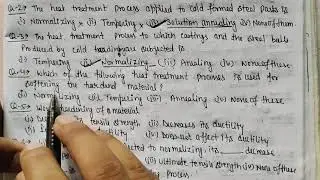 Q-2:- The heat treatment process applied to cold formed steel parts is
i) Normalizing ii) Tempering iii) Solution annealing iv) None of them
Q-3:- The heat treatment process to which castings and the steel balls
Produced by cold heading are subjected is
i) Tempering ii) Normalizing iii) Annealing iv) None of these
Which of the following heat treatment processes is used for
softening the hardened material?
i) Normalizing ii) Tempering iii) Annealing iv) None of these
Q-5:- hardening of a material
i) tensile strength ii) Decreases its ductility
ductility iv) Does not affect its ductility
subjected to normalizing, its decrease
iii) Ultimate tensile strength iv) None of these
process.